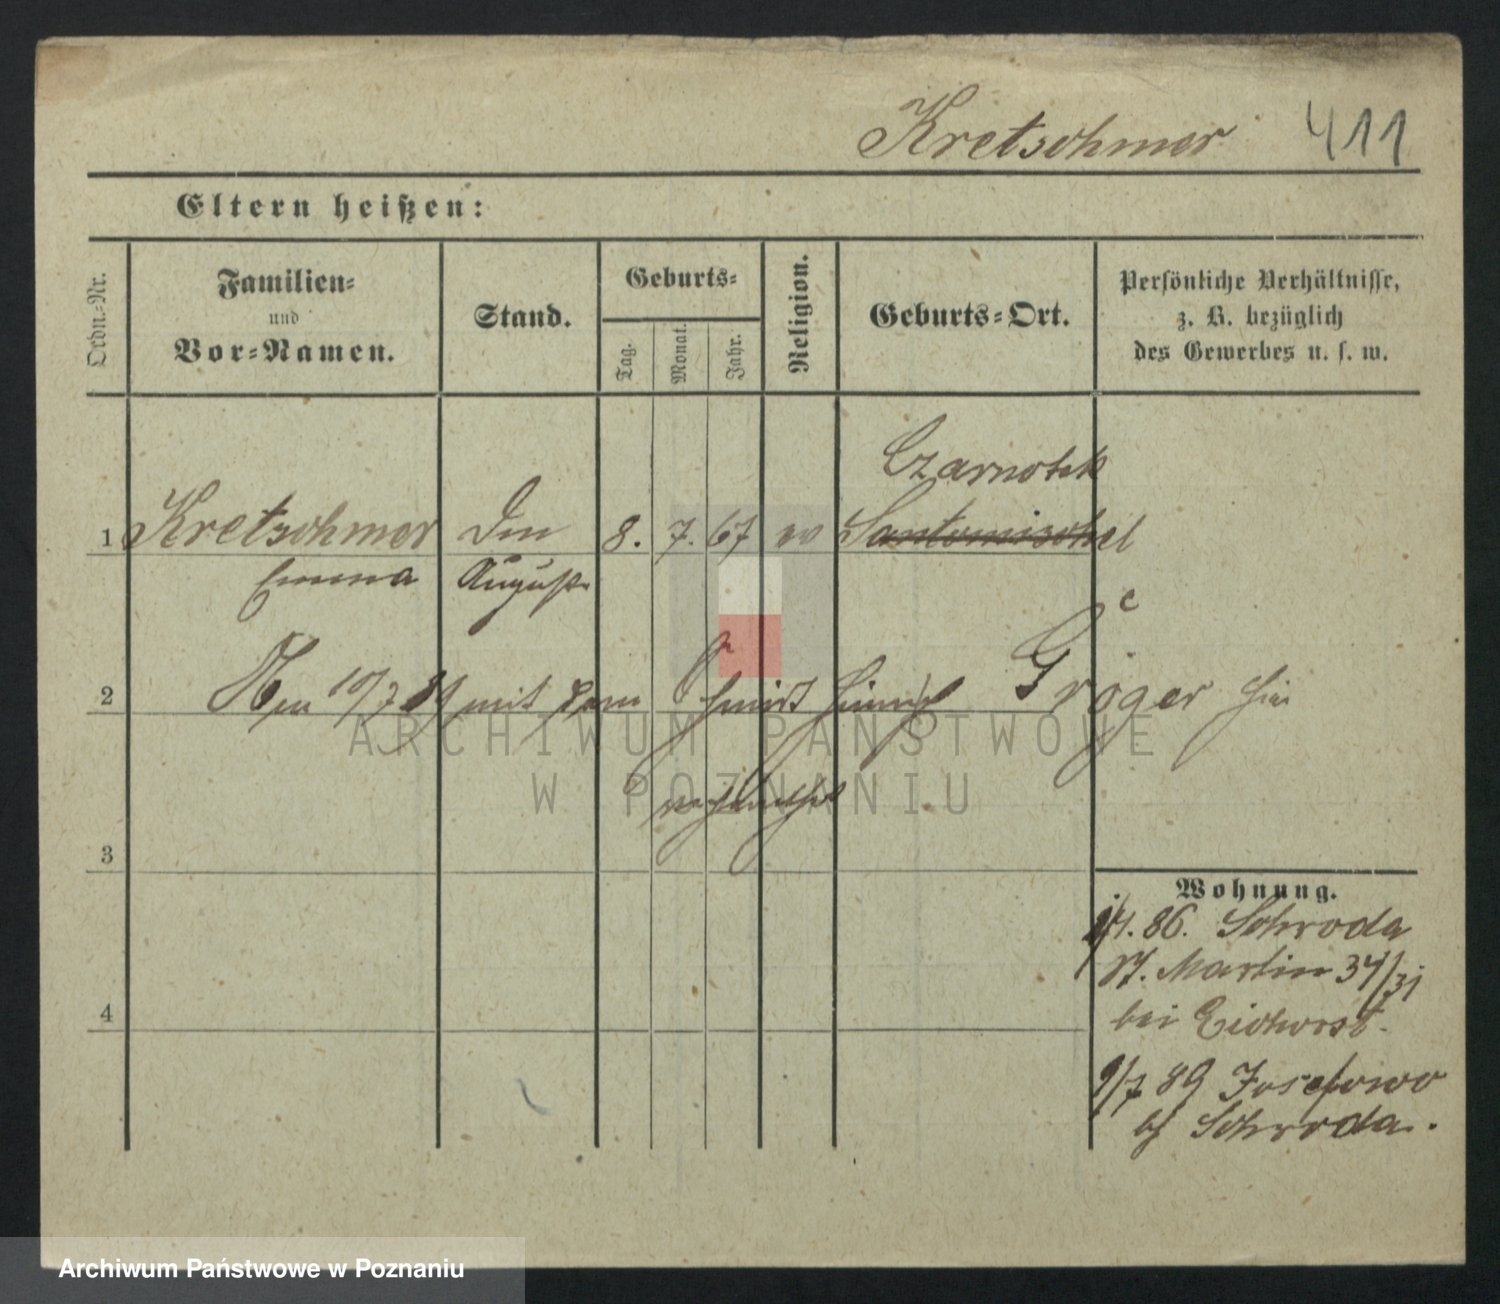 Kretschmer 411
Eltern heißen:
Ordn.-Nr.
Familien-
und
Vor-Namen.
Stand.
Geburts-
Tag.
Monat.
Jahr.
Religion.
Geburts-Ort.
Persönliche Verhältnisse,
z. B. bezüglich
des Gewerbes u. s. w.
Czarnotek
1 Kretschmer 8. 7. 67 ev Santomischel
Emma August
2 Am 10/7 89 mit dem Heinrich Gröger hier
ARCHIWUM PAŃSTWOWE
W POZNANIU
3
Wohnung.
86. Schroda
St. Martin 34/31
4 bei Eichworst.
9/7 89 Josefowo
b/ Schroda.
Archiwum Państwowe w Poznaniu